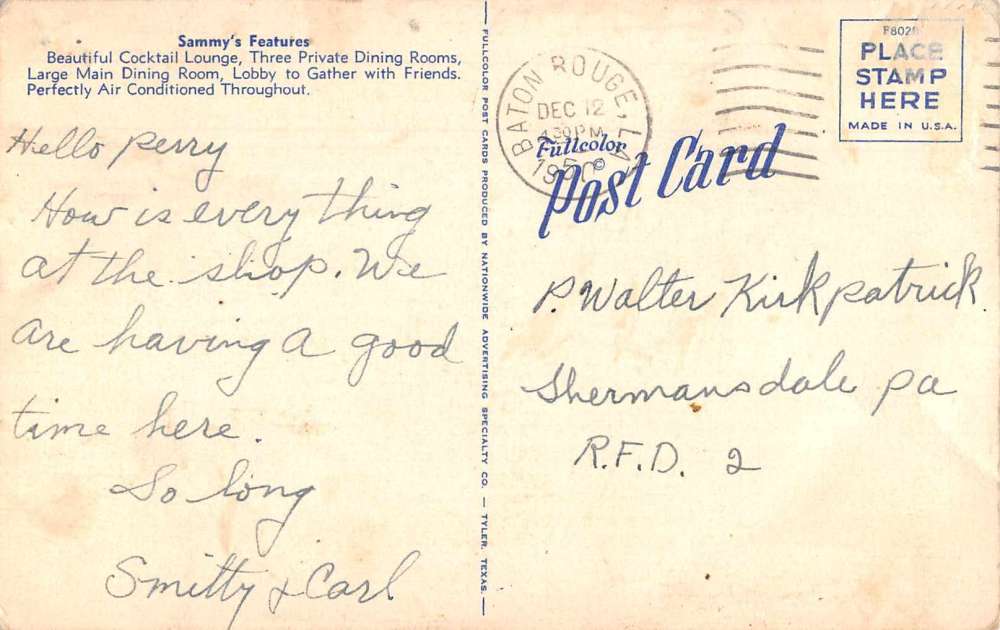 Sammy's Features
Beautiful Cocktail Lounge, Three Private Dining Rooms,
Large Main Dining Room, Lobby to Gather with Friends.
Perfectly Air Conditioned Throughout.
Hello perry
How is every thing
at the shop. We
are having a good
time here.
So long
Smitty & Carl
FULLCOLOR POST CARDS PRODUCED BY NATIONWIDE ADVERTISING SPECIALTY CO. — TYLER, TEXAS.
BATON ROUGE, LA.
DEC 12
4 30 PM
1950
Fullcolor
Post Card
PLACE
STAMP
HERE
MADE IN U.S.A.
P. Walter Kirkpatrick
Shermansdale pa
R.F.D. 2